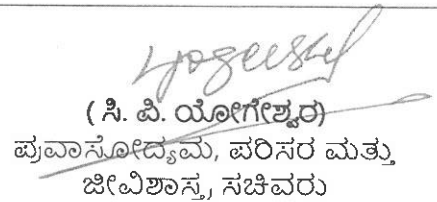 ( ಸಿ. ಪಿ. ಯೋಗೇಶ್ವರ)
ಪ್ರವಾಸೋದ್ಯಮ, ಪರಿಸರ ಮತ್ತು
ಜೀವಿಶಾಸ್ತ್ರ ಸಚಿವರು